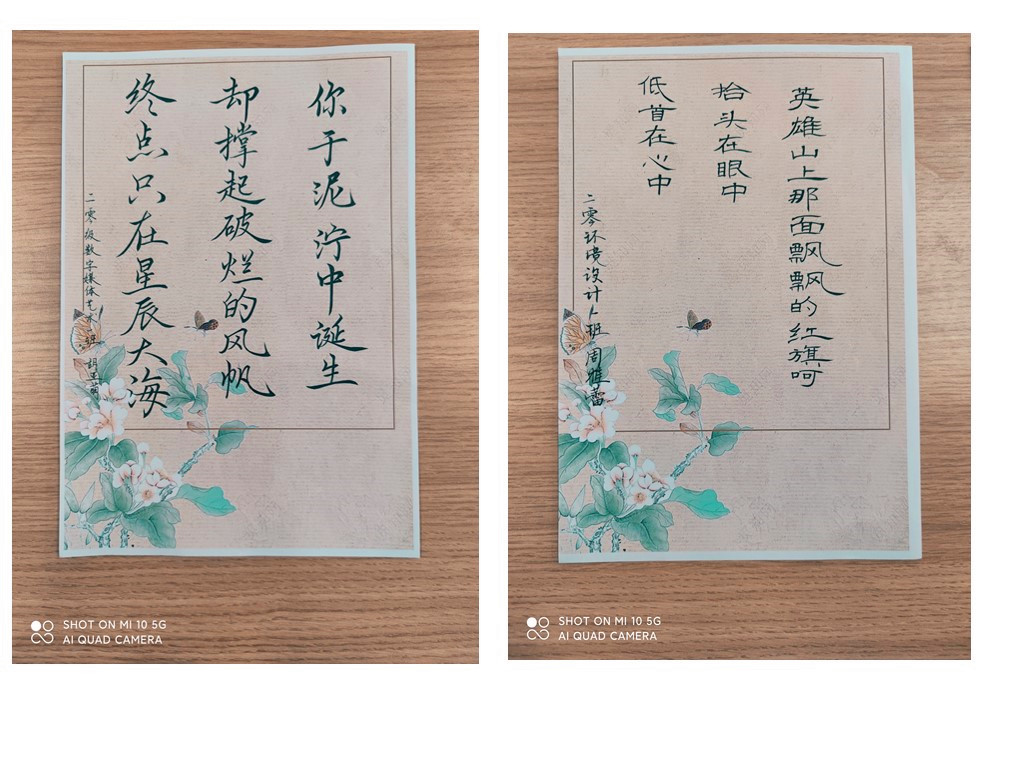 你于泥泞中诞生
却撑起破烂的风帆
终点只在星辰大海
二零级数字媒体艺术一班 胡
SHOT ON MI 10 5G
AI QUAD CAMERA
英雄山上那面飘飘的红旗呵
抬头在眼中
低首在心中
二零环境设计人班周雅蕾
SHOT ON MI 10 5G
AI QUAD CAMERA